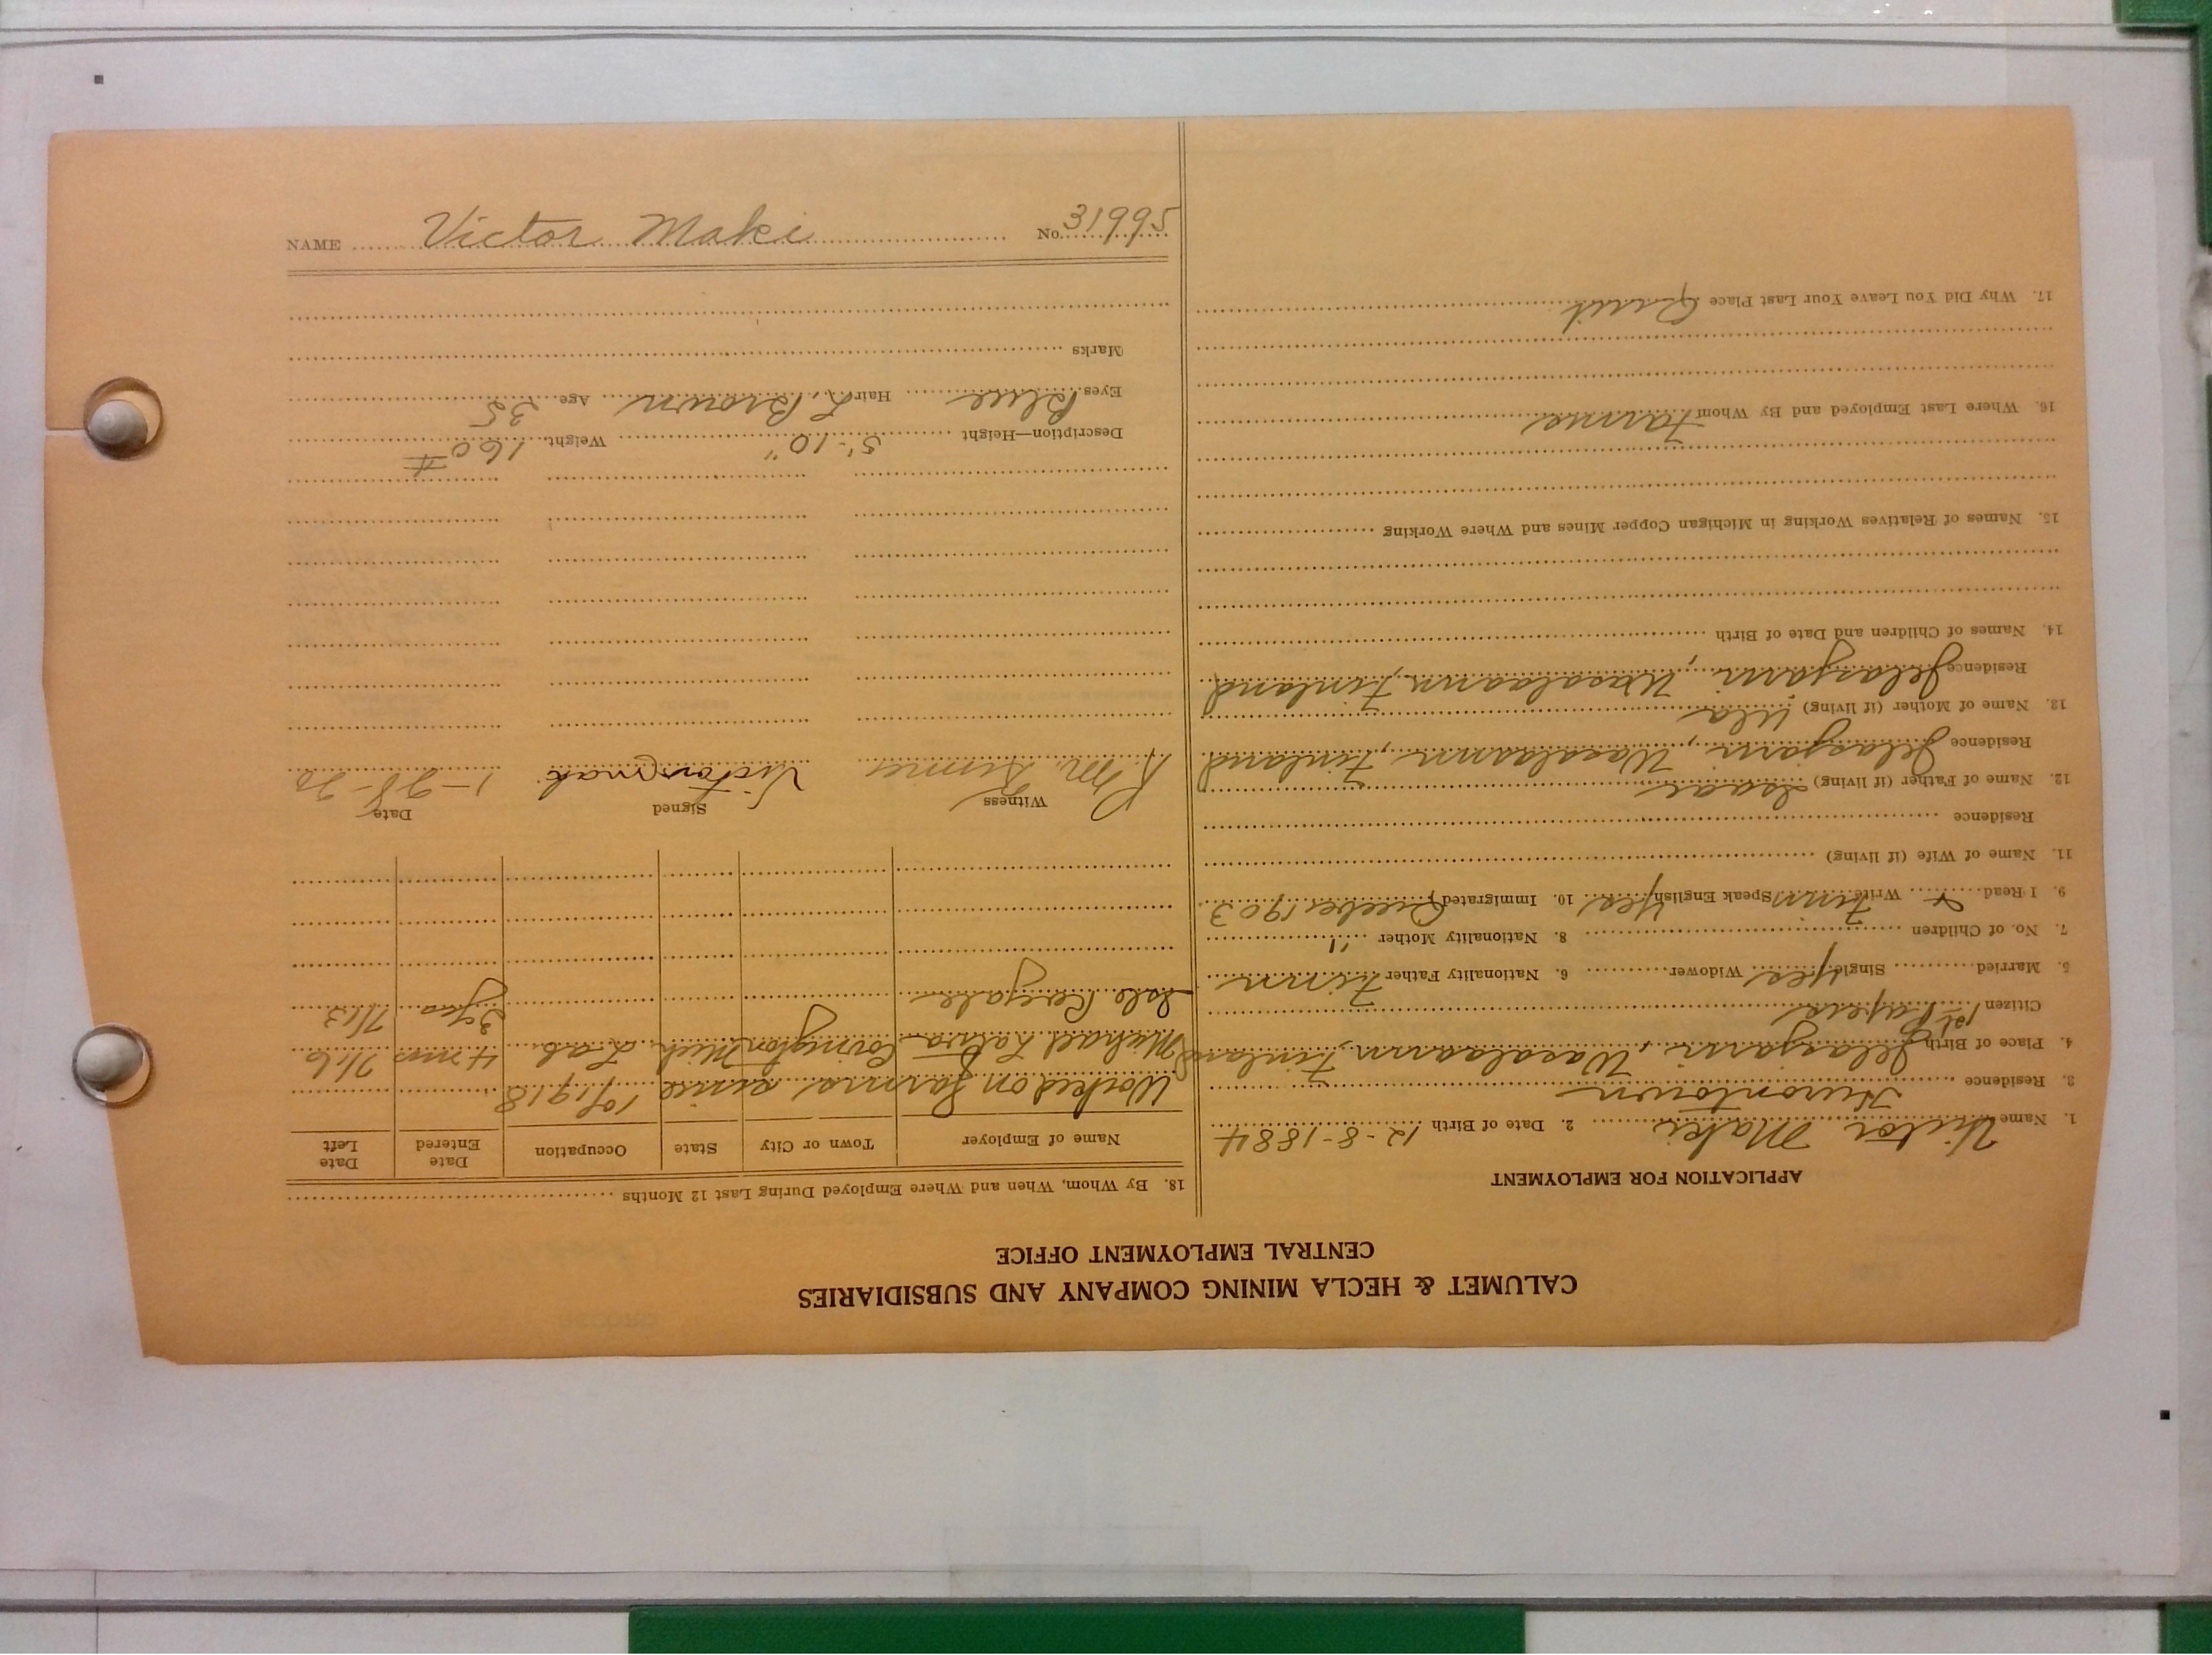 NAME Victor Maki No. 31995
CALUMET & HECLA MINING COMPANY AND SUBSIDIARIES
CENTRAL EMPLOYMENT OFFICE
APPLICATION FOR EMPLOYMENT
1. Name Victor Maki 2. Date of Birth 12-8-1884
3. Residence Hurontown
4. Place of Birth Jalasjarvi, Wasalaann, Finland
Citizen 1st Papers
5. Married Single Yes Widower 6. Nationality Father Finn
7. No. of Children 8. Nationality Mother "
9. I Read & Write Finn Speak English Yes 10. Immigrated 1903
11. Name of Wife (if living)
Residence
12. Name of Father (if living) Isaac
Residence Jalasjarvi, Wasalaann, Finland
13. Name of Mother (if living)
Residence Jalasjarvi, Wasalaann, Finland
14. Names of Children and Date of Birth
15. Names of Relatives Working in Michigan Copper Mines and Where Working
16. Where Last Employed and By Whom Farmer
17. Why Did You Leave Your Last Place Quit
18. By Whom, When and Where Employed During Last 12 Months
Name of Employer Town or City State Occupation Date Entered Date Left
Worked on farms since 1 of 1918
Michael Covington Mich. Lab. 4 mos 7/16
Isle Royale 3 yrs 7/13
Witness Signed Date
R. M. Victor mak 1-28-20
Description—Height 5'-10" Weight 160 #
Eyes Blue Hair L. Brown Age 35
Marks